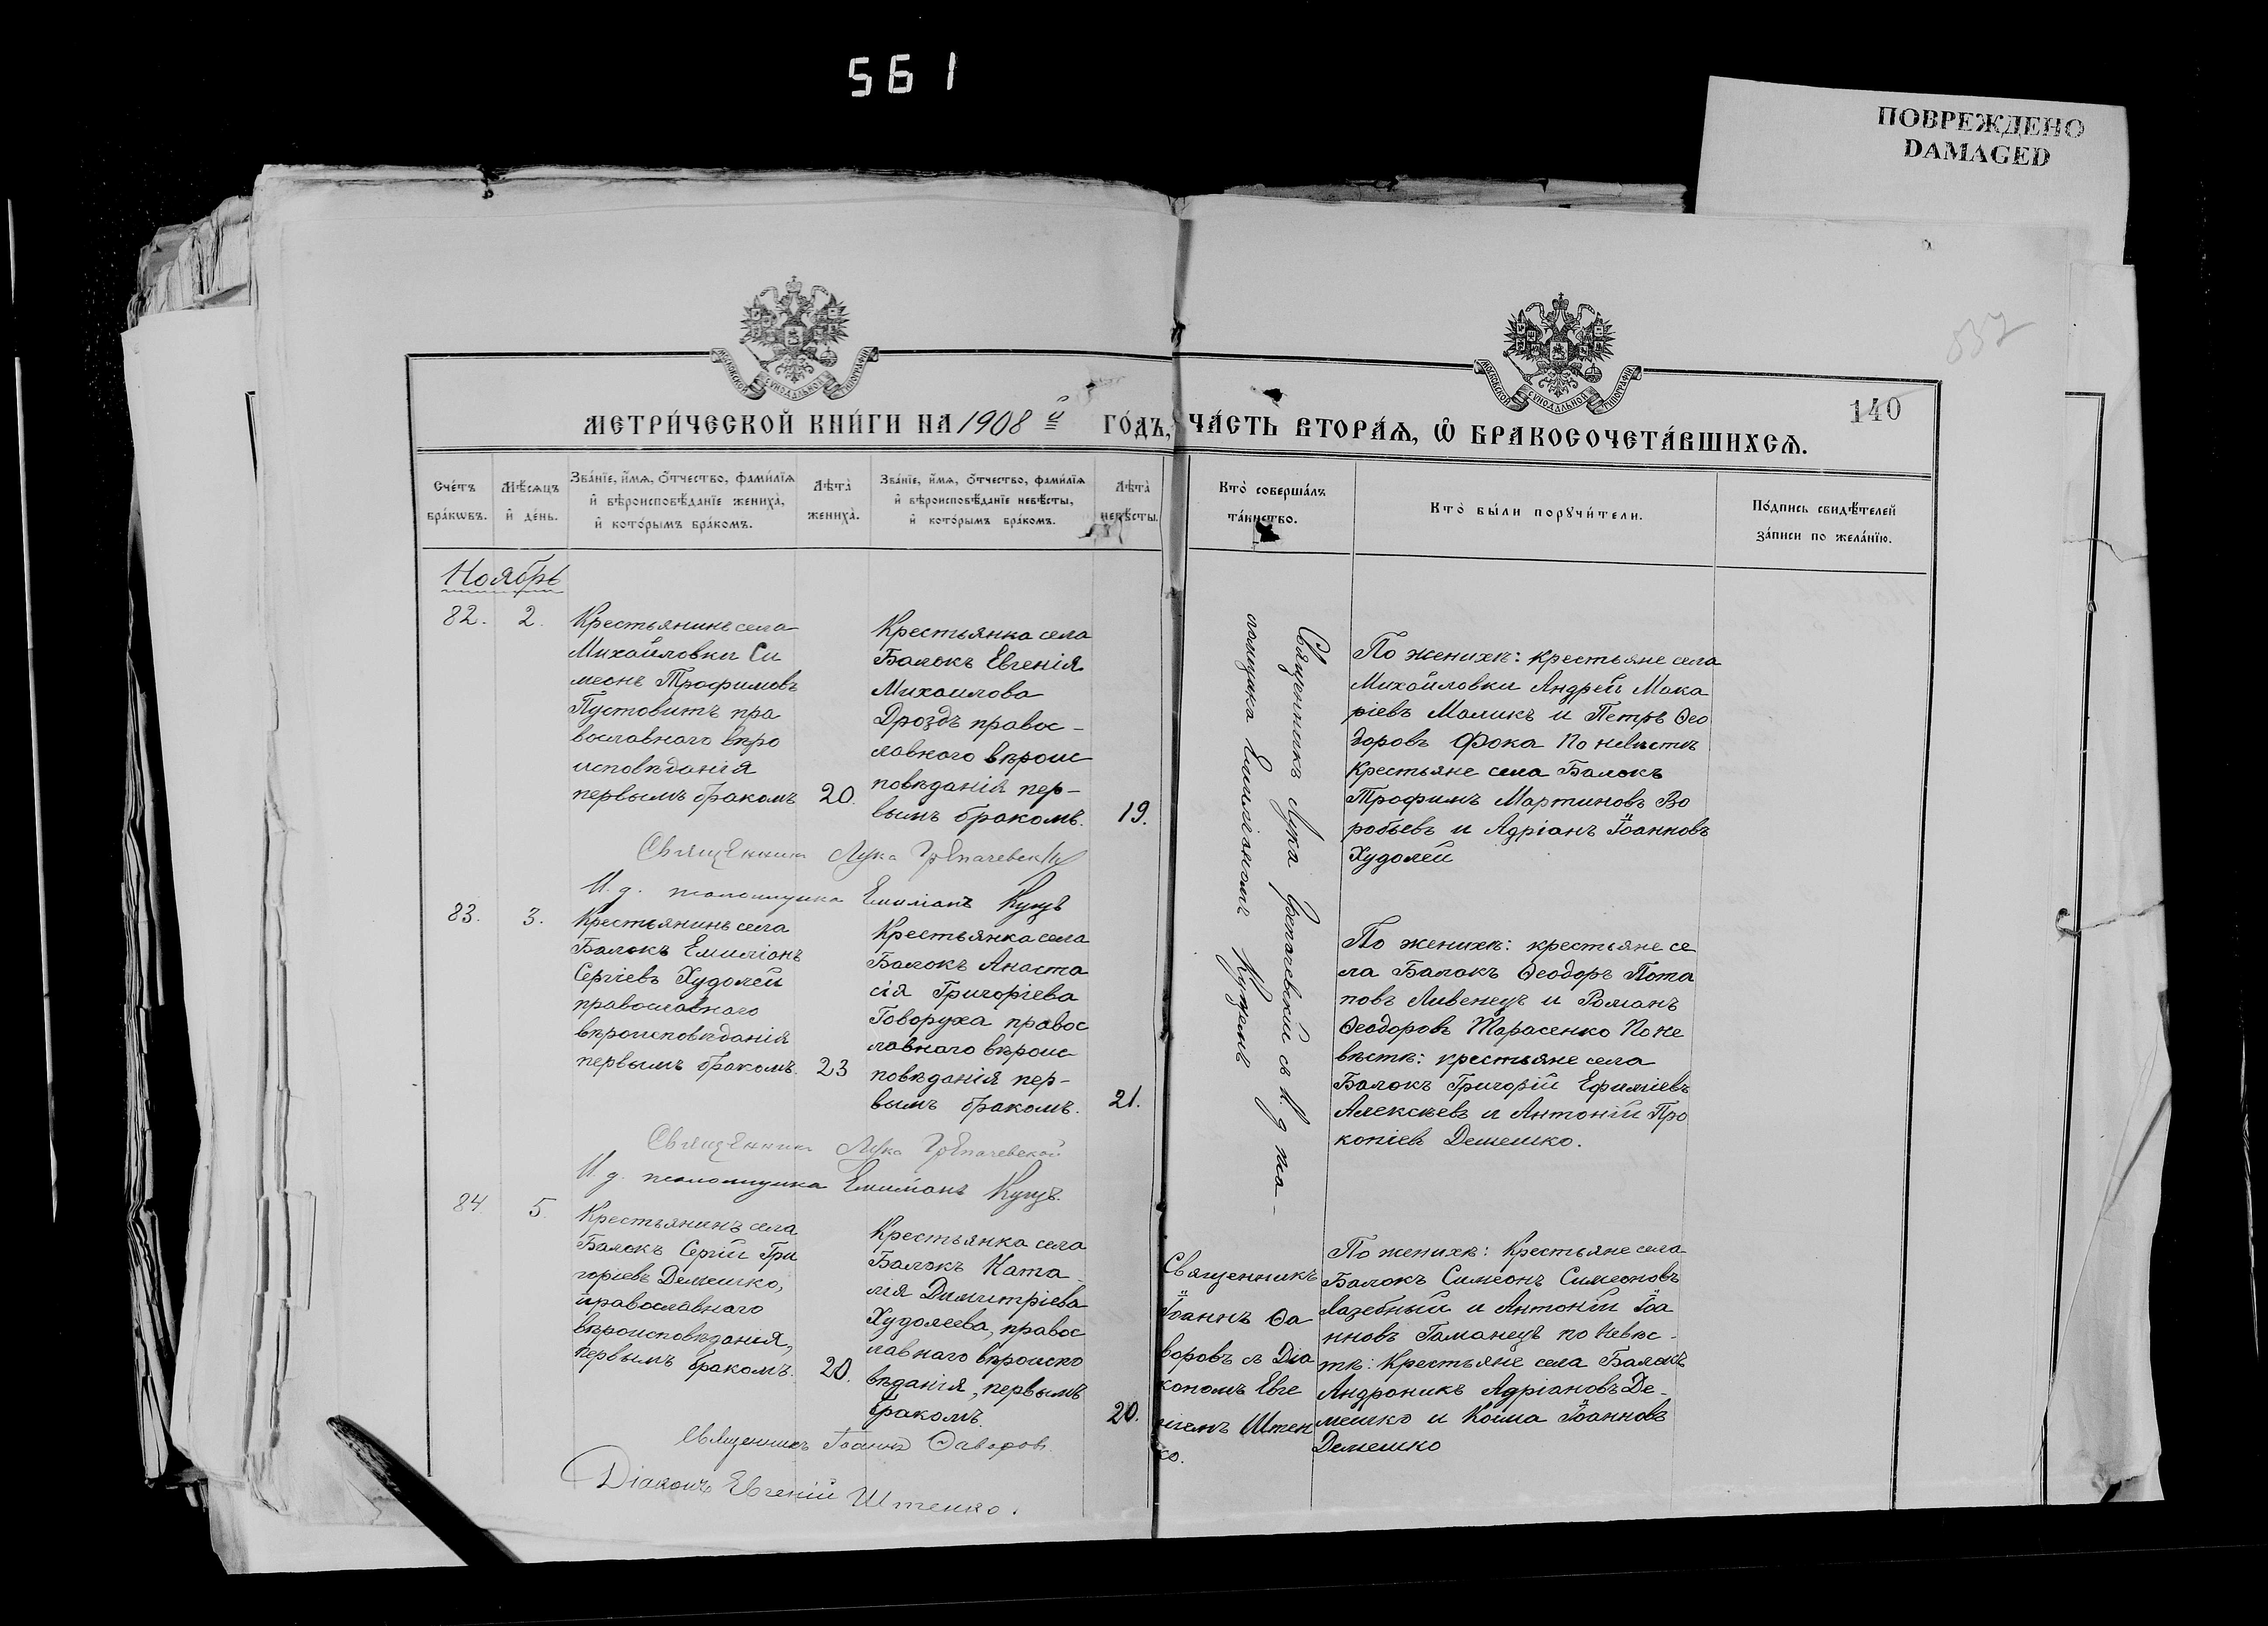 561
ПОВРЕЖДЕНО
DAMAGED
МОСКОВСКОЙ СѴНОДАЛЬНОЙ ТИПОГРАФІИ
МОСКОВСКОЙ СѴНОДАЛЬНОЙ ТИПОГРАФІИ
837
140
МЕТРИ́ЧЕСКОЙ КНИ́ГИ НА 1908 й ГО́ДЪ, ЧА́СТЬ ВТОРА́Я, Ѡ БРАКОСОЧЕТА́ВШИХСЯ.
Сче́тъ
бра́кѡвъ.
Мѣ́сяцъ
и҆ де́нь.
Зва́нїе, и҆́мя, ѻ҆́тчество, фами́лїя
и҆ вѣроисповѣ́данїе жениха̀,
и҆ кото́рымъ бра́комъ.
Лѣта̀
жениха̀.
Зва́нїе, и҆́мя, ѻ҆́тчество, фами́лїя
и҆ вѣроисповѣ́данїе невѣ́сты,
и҆ кото́рымъ бра́комъ.
Лѣта̀
невѣ́сты.
Кто̀ соверша́лъ
та́инство.
Кто̀ бы́ли порꙋчи́тели.
По́дпись свидѣ́телей
за́писи по жела́нїю.
Ноябрь
82.
2.
Крестьянинъ села
Михайловки Си
меонъ Трофимовъ
Пустовитъ пра
вославнаго вѣро
исповѣданія
первымъ бракомъ
20.
Крестьянка села
Балокъ Евгенія
Михаилова
Дроздъ правос-
лавнаго вѣроис
повѣданія пер-
вымъ бракомъ.
19.
Священникъ Лука Грепачевскій съ И. д пса-
ломщика Емиліаномъ Куцемъ
По женихѣ: крестьяне села
Михайловки Андрей Мака
ріевъ Маликъ и Петръ Ѳео
доровъ Фока По невѣстѣ
Крестьяне села Балокъ
Трофимъ Мартиновъ Во
робьевъ и Адріанъ Іоанновъ
Худолей
Священникъ Лука Грепачевскій
И. д. псаломщика Емиліанъ Куцъ
83.
3.
Крестьянинъ села
Балокъ Емиліанъ
Сергіевъ Худолей
православнаго
вѣроисповѣданія
первымъ бракомъ.
23
Крестьянка села
Балокъ Анаста
сія Григоріева
Говоруха правос
лавнаго вѣроис
повѣданія пер-
вымъ бракомъ.
21.
По женихѣ: крестьяне се
ла Балокъ Ѳеодоръ Пота
повъ Ливенецъ и Романъ
Ѳеодоровъ Тарасенко По не
вѣстѣ: крестьяне села
Балокъ Григорій Ефиміевъ
Алексѣевъ и Антоній Про
копіевъ Демешко.
Священникъ Лука Грепачевской
И. д. псаломщика Емиліанъ Куцъ.
84
5.
Крестьянинъ села
Балокъ Сергій Гри
горіевъ Демешко,
православнаго
вѣроисповѣданія,
первымъ бракомъ.
20.
Крестьянка села
Балокъ Ната-
лія Димитріева
Худолеева, правос
лавнаго вѣроиспо
вѣданія, первымъ
бракомъ.
20.
Священникъ
Іоаннъ Ѳа
воровъ съ Діа
кономъ Евге
ніемъ Штен
ко.
По женихѣ: Крестьяне села
Балокъ Симеонъ Симеоновъ
Лазебный и Антоній Іоа
нновъ Гаманецъ по невѣс-
тѣ: Крестьяне села Балокъ
Андроникъ Адріановъ Де-
мешко и Косма Іоанновъ
Демешко
Священникъ Іоаннъ Ѳаворовъ
Діаконъ Евгеній Штенко.